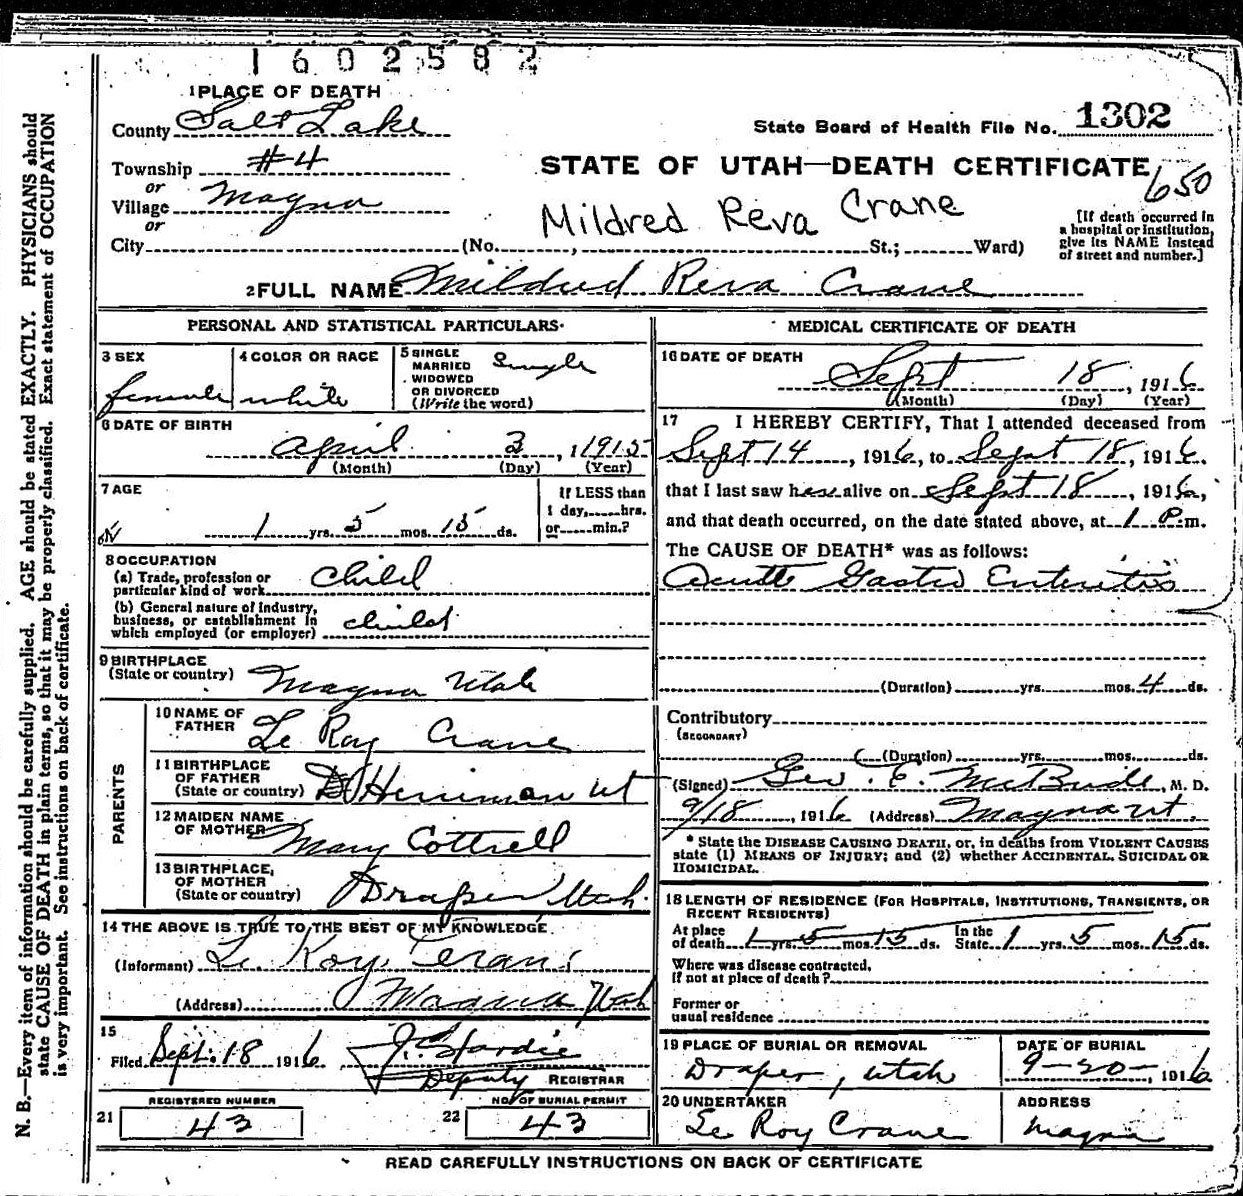 1602582
1 PLACE OF DEATH
County Salt Lake
State Board of Health File No. 1302
Township #4
or
Village Magna
or
STATE OF UTAH—DEATH CERTIFICATE
650
Mildred Reva Crane
[If death occurred in
a hospital or institution,
give its NAME instead
of street and number.]
City (No. , St.; Ward)
2 FULL NAME Mildred Reva Crane
PERSONAL AND STATISTICAL PARTICULARS
3 SEX
female
4 COLOR OR RACE
white
5 SINGLE
MARRIED
WIDOWED
OR DIVORCED
(Write the word)
Single
6 DATE OF BIRTH
April 3, 1 1915
(Month) (Day) (Year)
7 AGE
1 yrs. 5 mos. 15 ds.
If LESS than
1 day, hrs.
or min.?
8 OCCUPATION
(a) Trade, profession or
particular kind of work child
(b) General nature of industry,
business, or establishment in
which employed (or employer) child
9 BIRTHPLACE
(State or country) Magna Utah
PARENTS
10 NAME OF
FATHER Le Roy Crane
11 BIRTHPLACE
OF FATHER
(State or country) Herriman Ut
12 MAIDEN NAME
OF MOTHER Mary Cottrell
13 BIRTHPLACE,
OF MOTHER
(State or country) Draper Utah.
14 THE ABOVE IS TRUE TO THE BEST OF MY KNOWLEDGE
(Informant) Le Roy Crane
(Address) Magna Utah
15
Filed Sept. 18 1916
Deputy REGISTRAR
REGISTERED NUMBER
21 43
NO. OF BURIAL PERMIT
22 43
MEDICAL CERTIFICATE OF DEATH
16 DATE OF DEATH
Sept 18, 1916
(Month) (Day) (Year)
17 I HEREBY CERTIFY, That I attended deceased from
Sept 14, 1916, to Sept 18, 1916.
that I last saw her alive on Sept 18, 1916,
and that death occurred, on the date stated above, at 1 P.m.
The CAUSE OF DEATH* was as follows:
Acute Gastro Enteritis
(Duration) yrs. mos. 4 ds.
Contributory
(SECONDARY)
(Duration) yrs. mos. ds.
(Signed) Geo. E. McBride, M. D.
9/18, 1916 (Address) Magna Ut.
* State the DISEASE CAUSING DEATH, or, in deaths from VIOLENT CAUSES
state (1) MEANS OF INJURY; and (2) whether ACCIDENTAL, SUICIDAL OR
HOMICIDAL.
18 LENGTH OF RESIDENCE (FOR HOSPITALS, INSTITUTIONS, TRANSIENTS, OR
RECENT RESIDENTS)
At place
of death 1 yrs. 5 mos. 15 ds. In the
State 1 yrs. 5 mos. 15 ds.
Where was disease contracted,
if not at place of death?
Former or
usual residence
19 PLACE OF BURIAL OR REMOVAL
Draper, Utah
DATE OF BURIAL
9-20-, 1916
20 UNDERTAKER
Le Roy Crane
ADDRESS
Magna
READ CAREFULLY INSTRUCTIONS ON BACK OF CERTIFICATE
N. B.—Every item of information should be carefully supplied. AGE should be stated EXACTLY. PHYSICIANS should
state CAUSE OF DEATH in plain terms, so that it may be properly classified. Exact statement of OCCUPATION
is very important. See instructions on back of certificate.